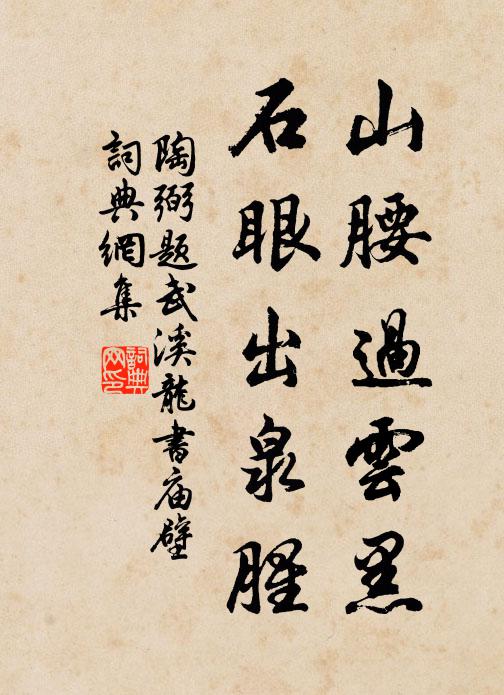 山腰過雲黑
石眼出泉腥
陶弼题武溪龍書庙壁
詞典網集
詞典网印